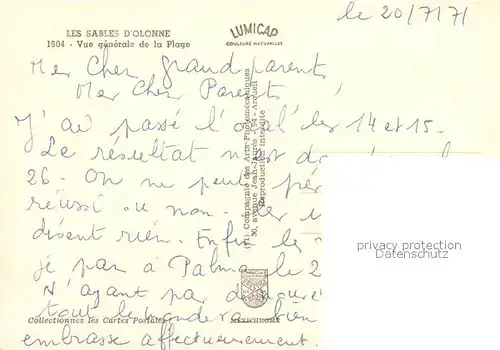 LES SABLES D'OLONNE
1604 - Vue générale de la Plage
LUMICAP
COULEURS NATURELLES
le 20/7/71
Mes Cher grand parents
Mes Cher Parents
J'ai passé l'oral les 14 et 15.
Le résultat n'est
26. On ne peut
réussi ou non.
disent rien. Enfin
je pars à Palma le 2
N'ayant pas
tout le monde
embrasse affectueusement.
(71) Compagnie des Arts Photomécaniques
30, avenue Jean-Jaurès - 94 - Arcueil
Reproduction interdite
Collectionnez les Cartes Postales
MEXICHROME
privacy protection
Datenschutz